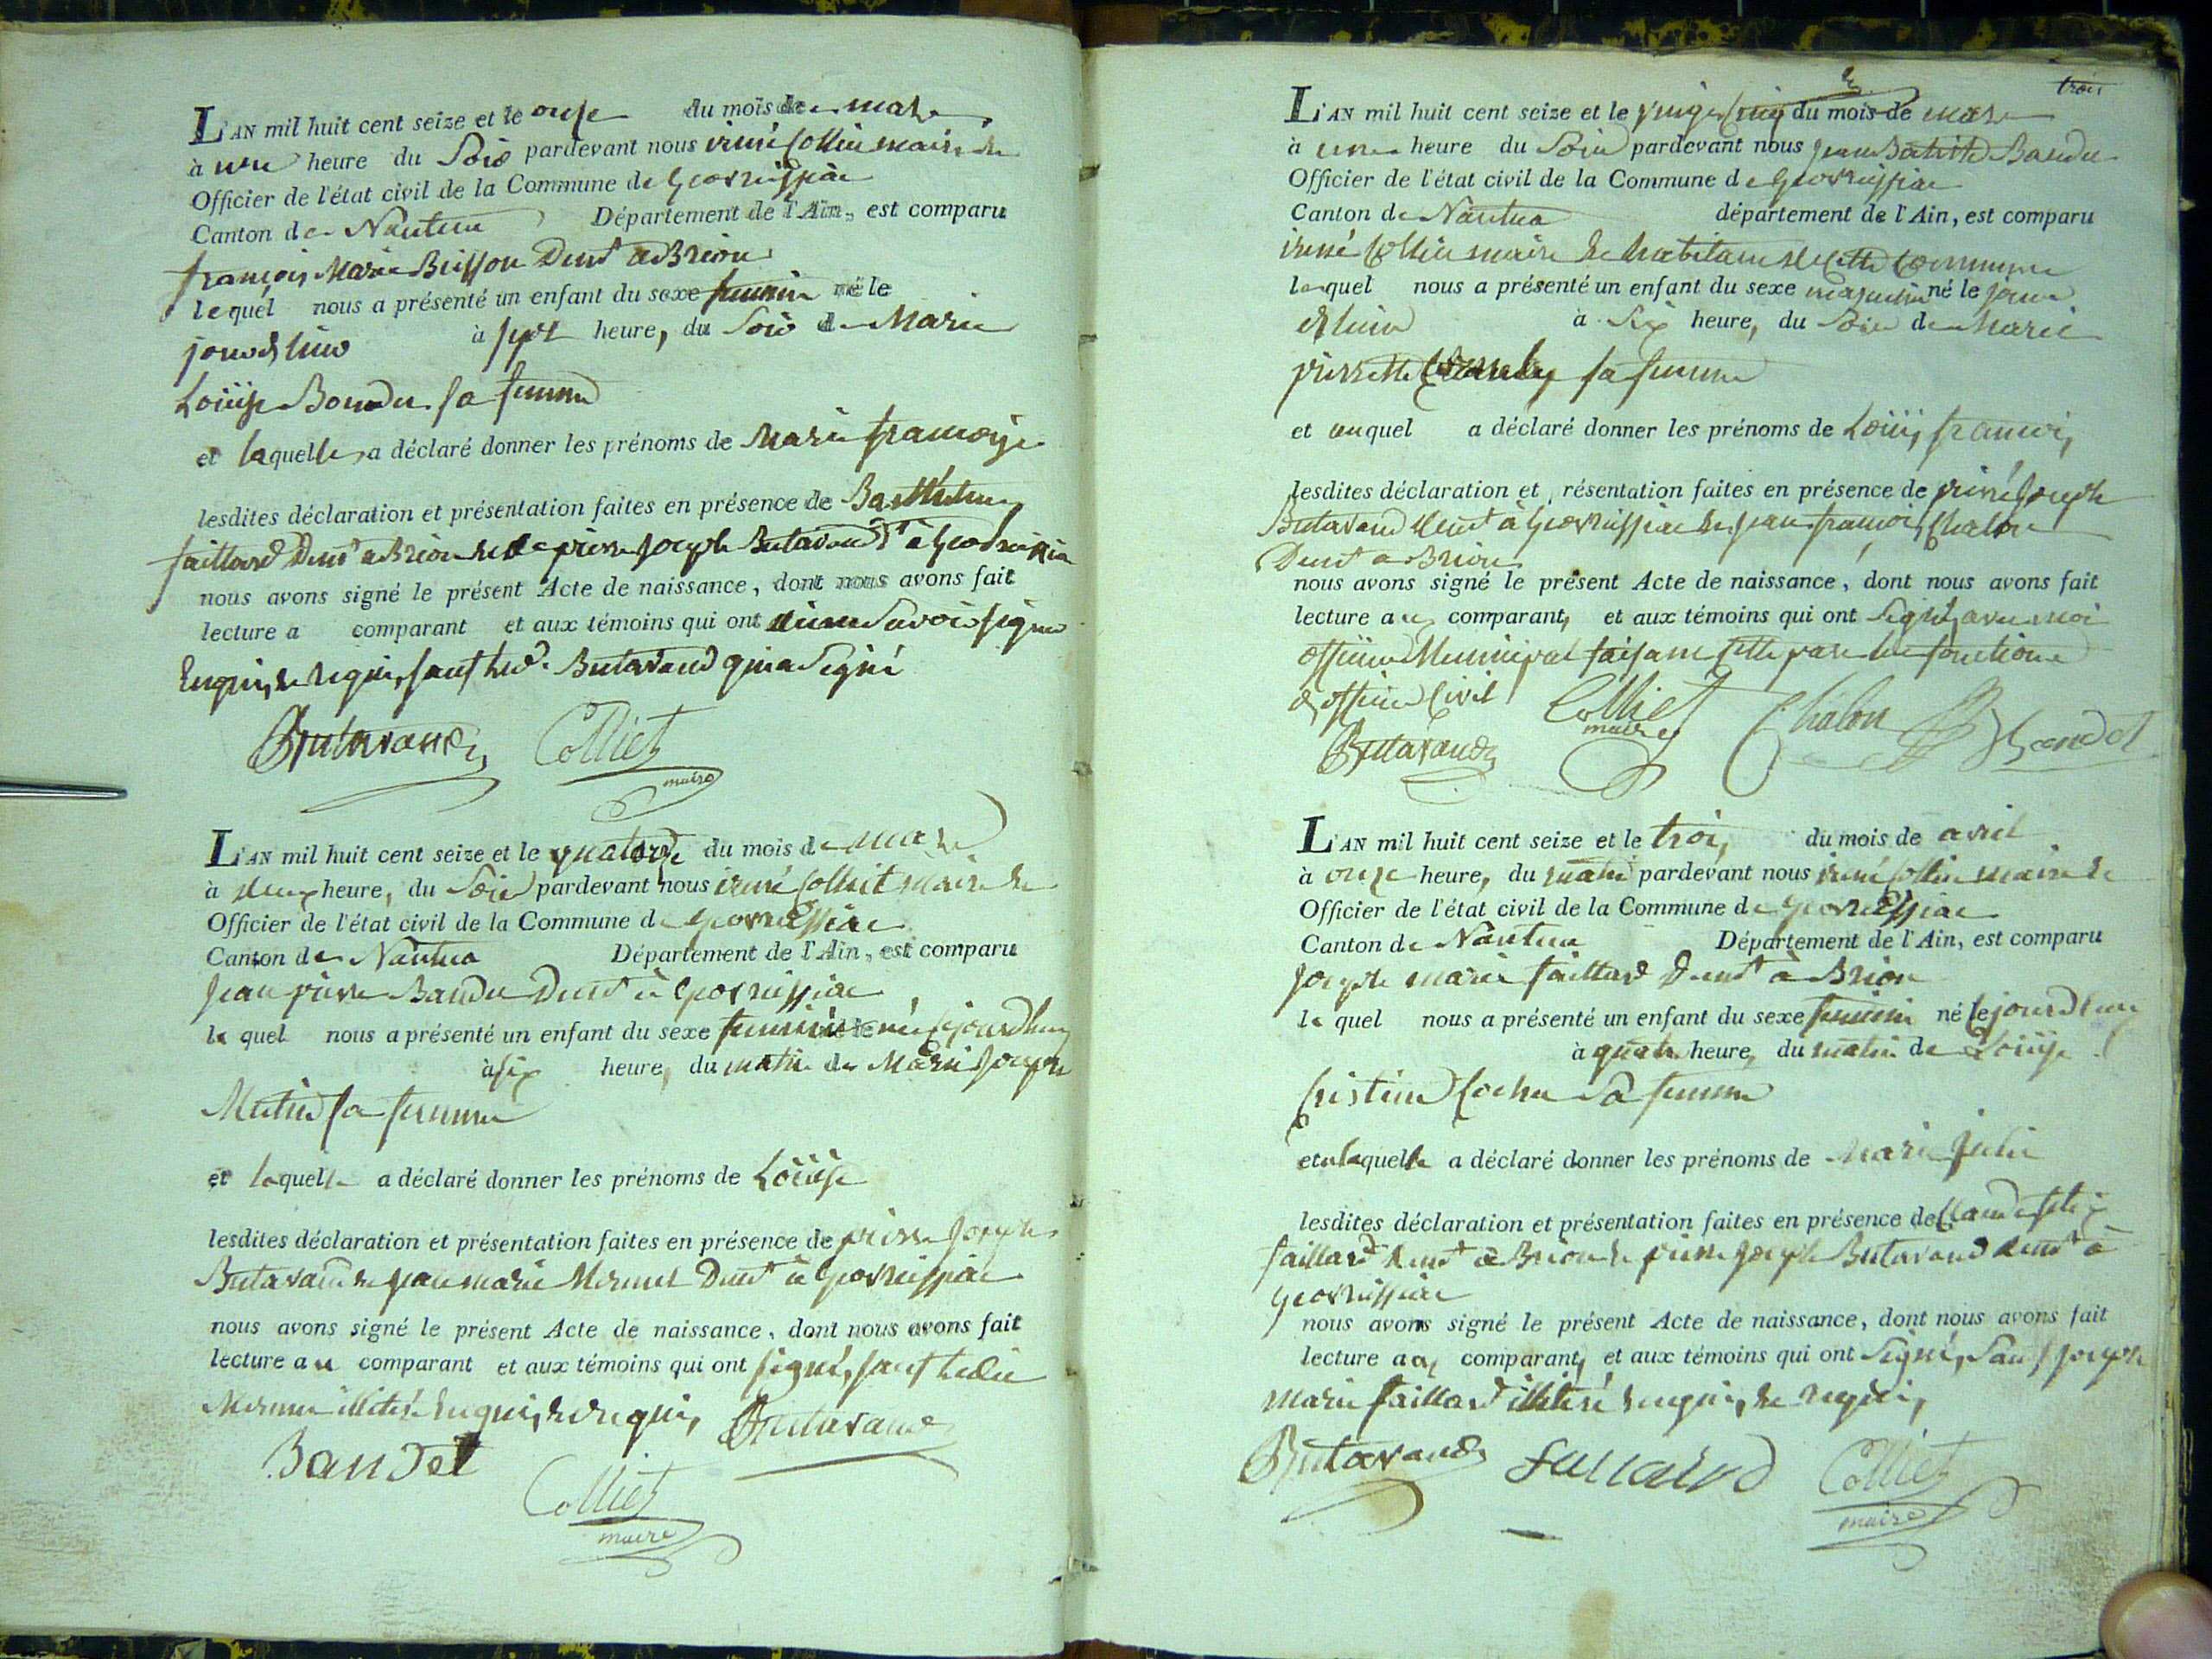 L'AN mil huit cent seize et le onze du mois de mars
à une heure du Soir pardevant nous irené Colliet maire &
Officier de l'état civil de la Commune de Geovreissiac
Canton de Nantua Département de l'Ain, est comparu
françois Marie Buisson Demt a Brion
le quel nous a présenté un enfant du sexe feminin né le
jour d'hier à sept heure, du Soir de Marie
Loüise Boudu sa femme
et laquelle a déclaré donner les prénoms de Marie françoise
lesdites déclaration et présentation faites en présence de Barthelemy
faillard Demt a Brion & de pierre Joseph Butavand Dt à Geovreissia
nous avons signé le présent Acte de naissance, dont nous avons fait
lecture a comparant et aux témoins qui ont dit ne Savoir signer
Enquis & requis, sauf led. Butavand qui a Signé
Butavand Colliet
maire
L'AN mil huit cent seize et le quatorze du mois de mars
à deux heure, du Soir pardevant nous irené Colliet maire &
Officier de l'état civil de la Commune de Geovreissiac
Canton de Nantua Département de l'Ain, est comparu
Jean pierre Baudu Demt à Geovreissiac
le quel nous a présenté un enfant du sexe feminin né cejourdhuy
à six heure, du matin de Marie Joseph
Mutin sa femme
et laquelle a déclaré donner les prénoms de Loüise
lesdites déclaration et présentation faites en présence de pierre Joseph
Butavand & Jean marie Mermet Demt à Geovreissiac
nous avons signé le présent Acte de naissance, dont nous avons fait
lecture au comparant et aux témoins qui ont signé, sauf ledit
Mermet illiteré Enquis, & requis, Butavand
Baudet
Colliet
maire
trois
L'AN mil huit cent seize et le vingt cinq du mois de mars
à une heure du Soir pardevant nous Jean Batiste Baudu
Officier de l'état civil de la Commune de Geovreissiac
Canton de Nantua département de l'Ain, est comparu
irené Colliet maire & habitant de Cette Commune
lequel nous a présenté un enfant du sexe masculin né le jour
d'hier à Six heure, du Soir de Marie
pierrette sa femme
et auquel a déclaré donner les prénoms de Loüis, françois,
lesdites déclaration et résentation faites en présence de pierre Joseph
Butavand Demt à Geovreissiac & Jean françois, Chalon
Demt a Brion
nous avons signé le présent Acte de naissance, dont nous avons fait
lecture aux comparant, et aux témoins qui ont Signé, avec moi
officier Municipal faisant Cette part les fonctions
d'officier Civil Colliet Chalon Baudet
maire
Butavand
L'AN mil huit cent seize et le trois, du mois de avril
à onze heure, du matin pardevant nous irené Colliet maire &
Officier de l'état civil de la Commune de Geovreissiac
Canton de Nantua Département de l'Ain, est comparu
Joseph marie faillard Demt à Brion
le quel nous a présenté un enfant du sexe feminin né cejourdhuy
à quatre heure, du matin de Loüise
Cristine Cochu Sa femme
et a laquelle a déclaré donner les prénoms de Marie Julie
lesdites déclaration et présentation faites en présence de Claude felix
faillard Demt à Brion & pierre Joseph Butavand Demt à
Geovreissiac
nous avons signé le présent Acte de naissance, dont nous avons fait
lecture aux comparant, et aux témoins qui ont Signé, Sauf Joseph
marie faillard illiteré Enquis, & requis,
Butavand Faillard Colliet
maire